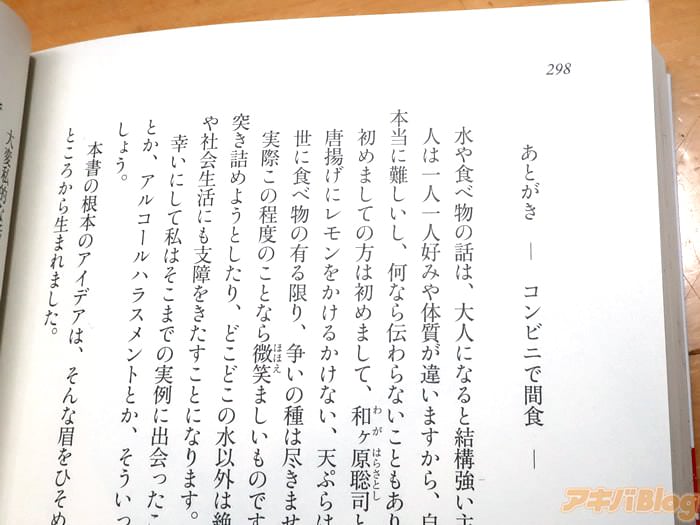 298
あとがき ― コンビニで間食 ―
水や食べ物の話は、大人になると結構強い主
人は一人一人好みや体質が違いますから、自
本当に難しいし、何なら伝わらないこともあり
初めましての方は初めまして、和ヶ原聡司と
わがはらさとし
唐揚げにレモンをかけるかけない、天ぷらは
世に食べ物の有る限り、争いの種は尽きませ
実際この程度のことなら微笑ましいものです
ほほえ
突き詰めようとしたり、どこどこの水以外は絶
や社会生活にも支障をきたすことになります。
幸いにして私はそこまでの実例に出会ったこ
とか、アルコールハラスメントとか、そういっ
しょう。
本書の根本のアイデアは、そんな眉をひそめ
ところから生まれました。
アキバBlog